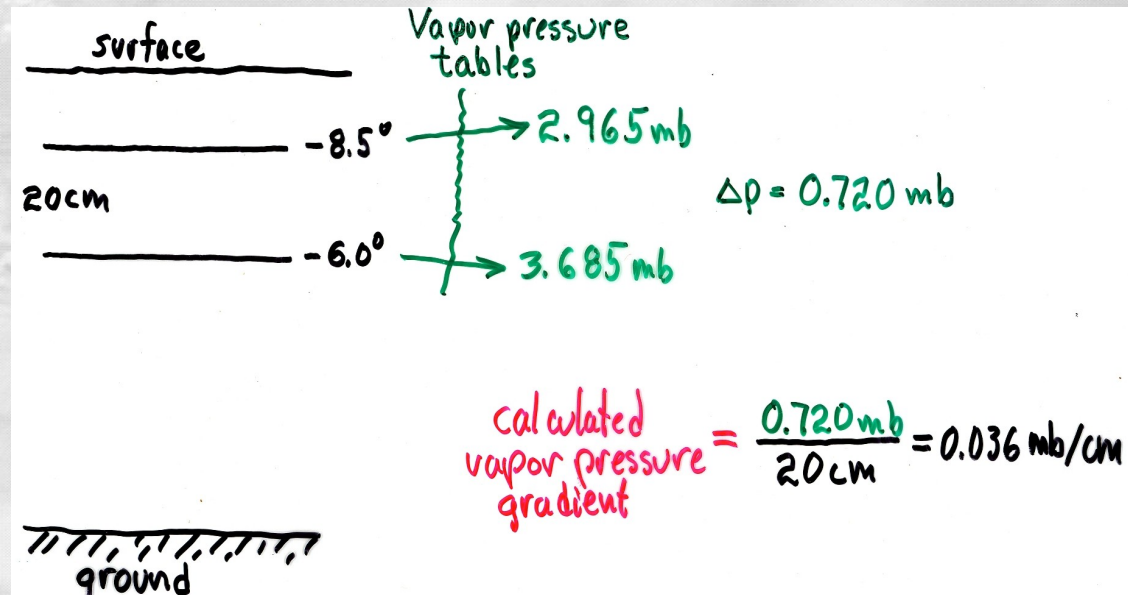 surface
Vapor pressure
tables
-8.5°
2.965 mb
20cm
Δp = 0.720 mb
-6.0°
3.685 mb
calculated
vapor pressure
gradient
= 0.720 mb / 20 cm = 0.036 mb/cm
ground